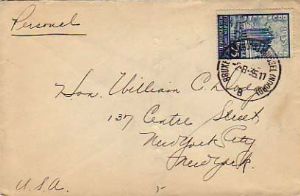 Personel
Hon. William C.
137 Centre Street,
New York City
New York.
U.S.A.